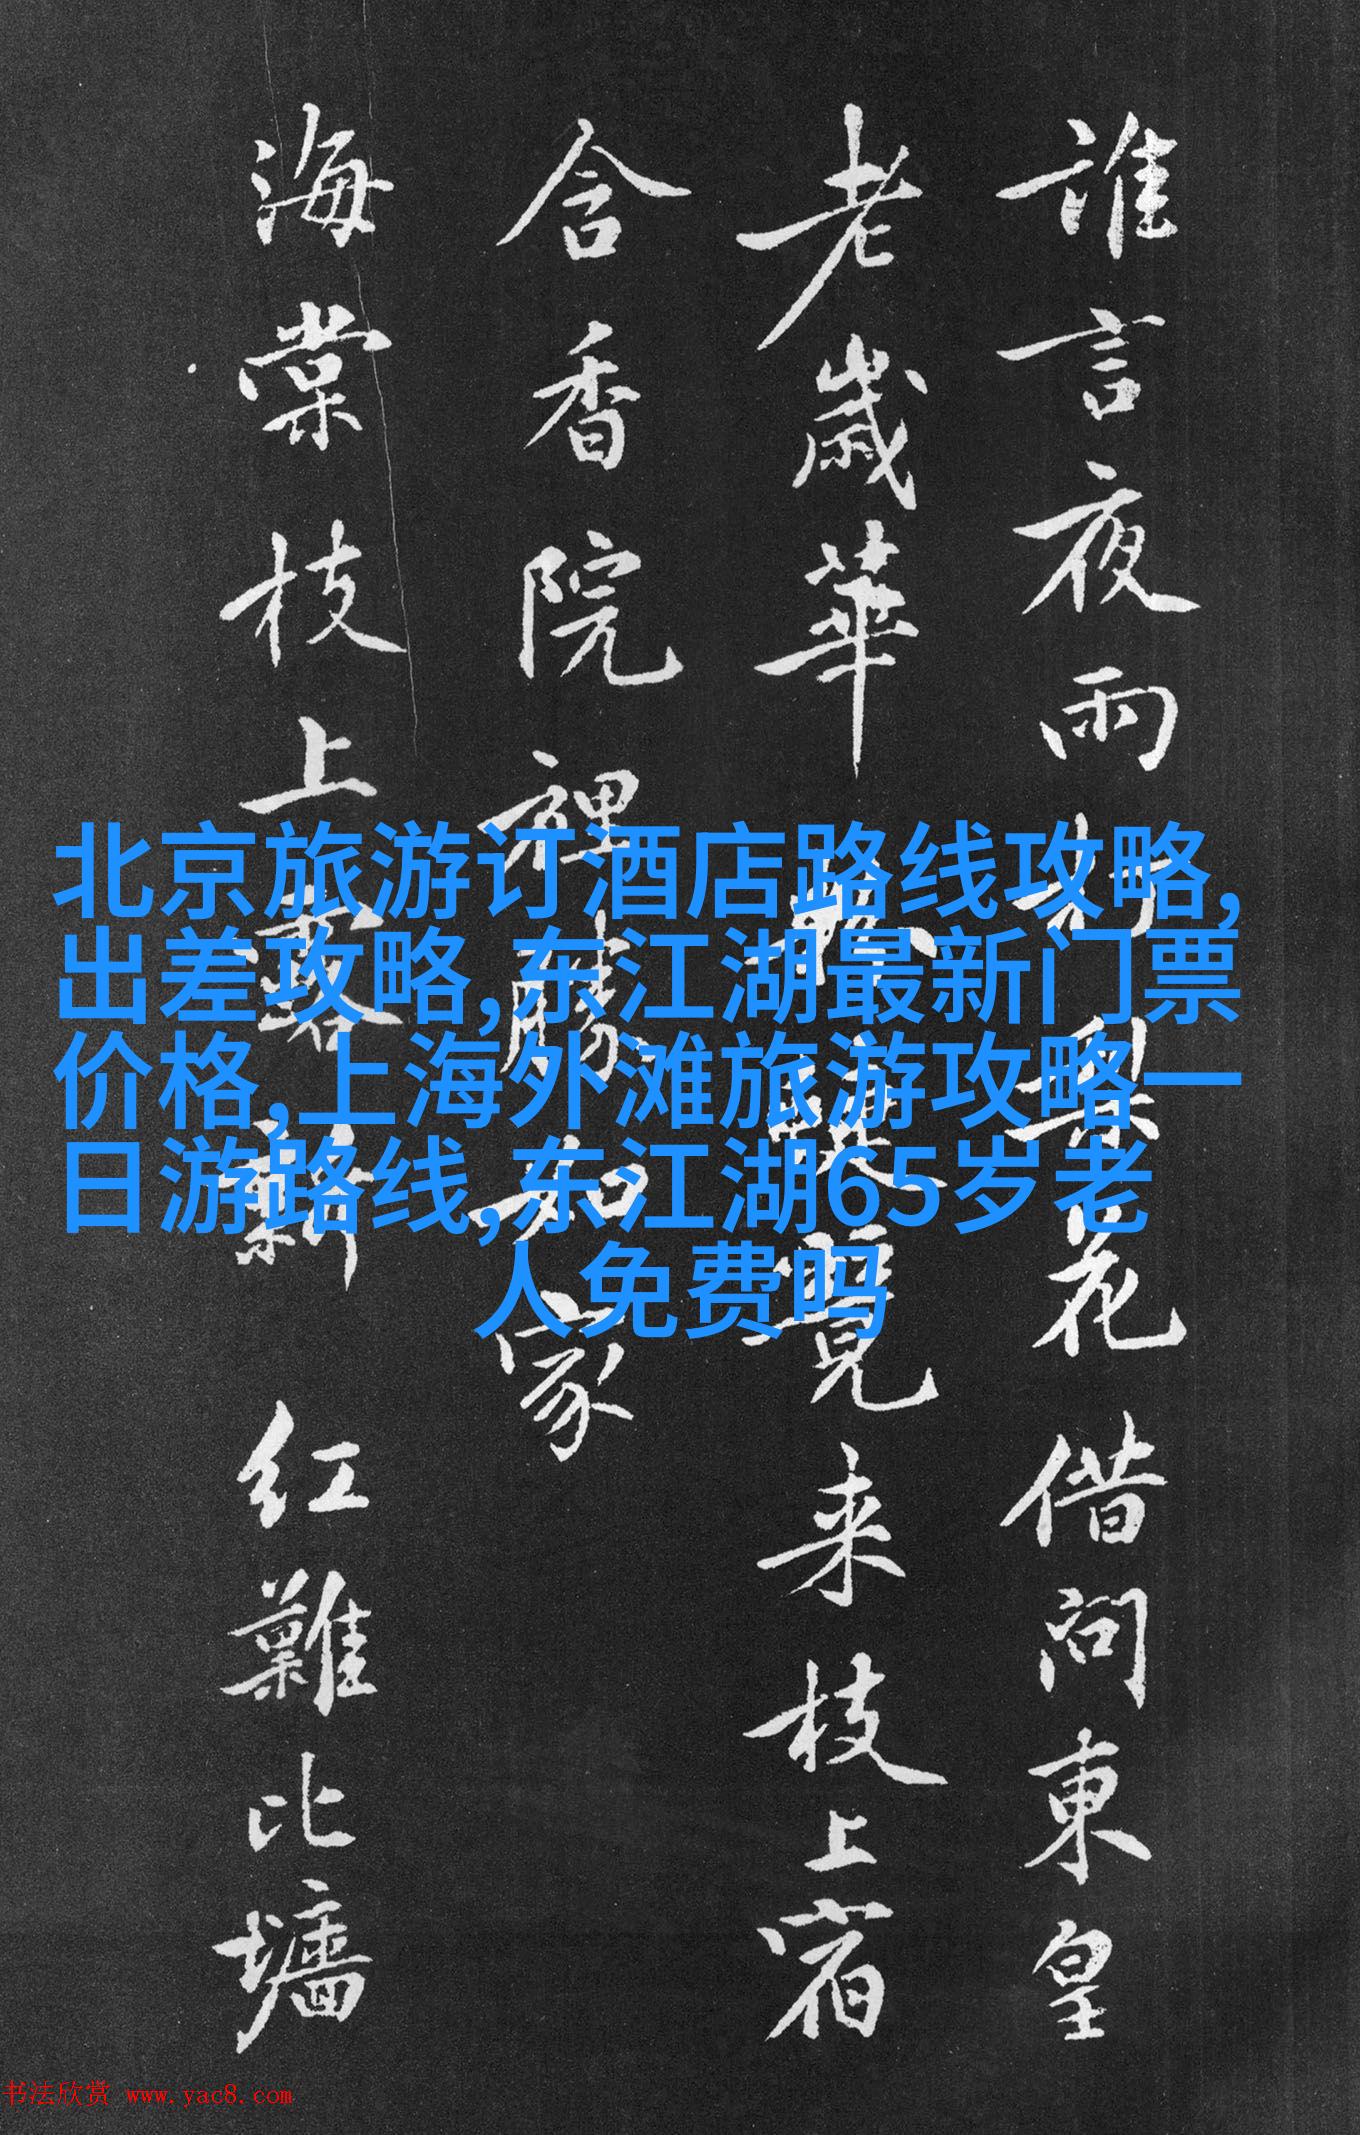 誰言夜雨梨花借問東皇
老歲華来枝上宿
含香院裡勝如家
海棠枝上新紅難比墻
北京旅游订酒店路线攻略,
出差攻略,东江湖最新门票
价格,上海外滩旅游攻略一
日游路线,东江湖65岁老
人免费吗
书法欣赏 www.yac8.com